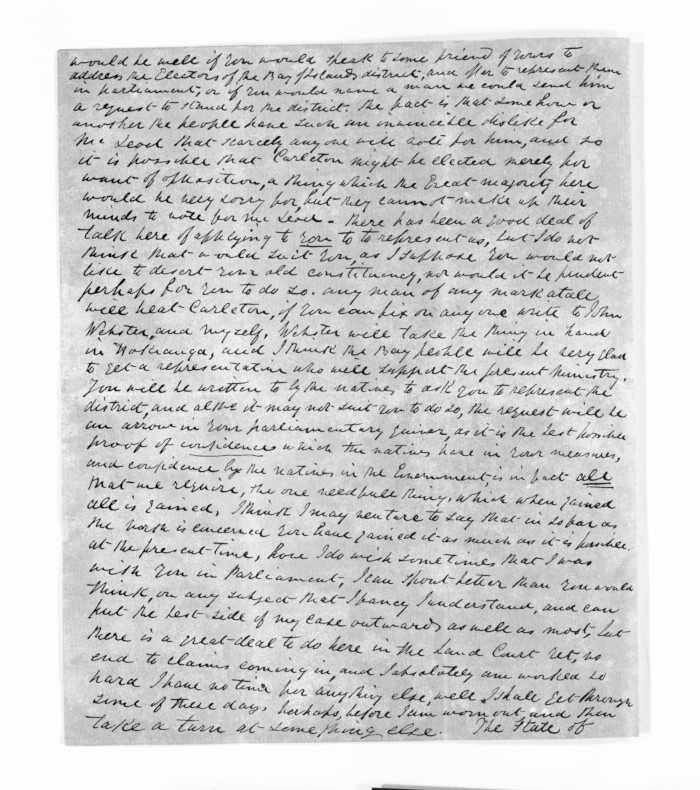 would be well if you would speak to some friend of yours to
address the Electors of the Bay of Islands district, and offer to represent them
in parliament, or if you would name a man we could send him
a request to stand for the district. The fact is that some how or
another the people have such an invincible dislike for
Mc Leod that scarcely any one will vote for him, and so
it is possible that Carleton might be elected merely for
want of opposition, a thing which the Great majority here
would be very sorry for, but they cannot make up their
minds to vote for Mc Leod - There has been a good deal of
talk here of applying to you to to represent us, but I do not
think that would suit you, as I suppose you would not
like to desert your old constituency, nor would it be prudent
perhaps for you to do so. any man of any mark at all
will beat Carleton, if you can fix on any one write to John
Webster, and myself, Webster will take the thing in hand
in Hokianga, and I think the Bay people will be very glad
to get a representative who will support the present ministry.
You will be written to by the natives to ask you to represent the
district, and altho it may not suit you to do so, the request will be
an arrow in your parliamentary quiver, as it is the best possible
proof of confidence which the natives have in your measures,
and confidence by the natives in the Government, is in fact all
that we require, the one needfull thing, which when gained
all is gained, I think I may venture to say that in so far as
the north is concerned you have gained it as much as it is possible
at the present time, how I do wish sometimes that I was
with you in Parliament, I can spout better than you would
think, on any subject that I fancy I understand, and can
put the best side of my case outwards as well as most, but
there is a great deal to do here in the Land Court yet, no
end to claims coming in, and I absolutely am worked so
hard I have no time for anything else, well I shall get through
some of these days perhaps, before I am worn out and then
take a turn at something else. The State of